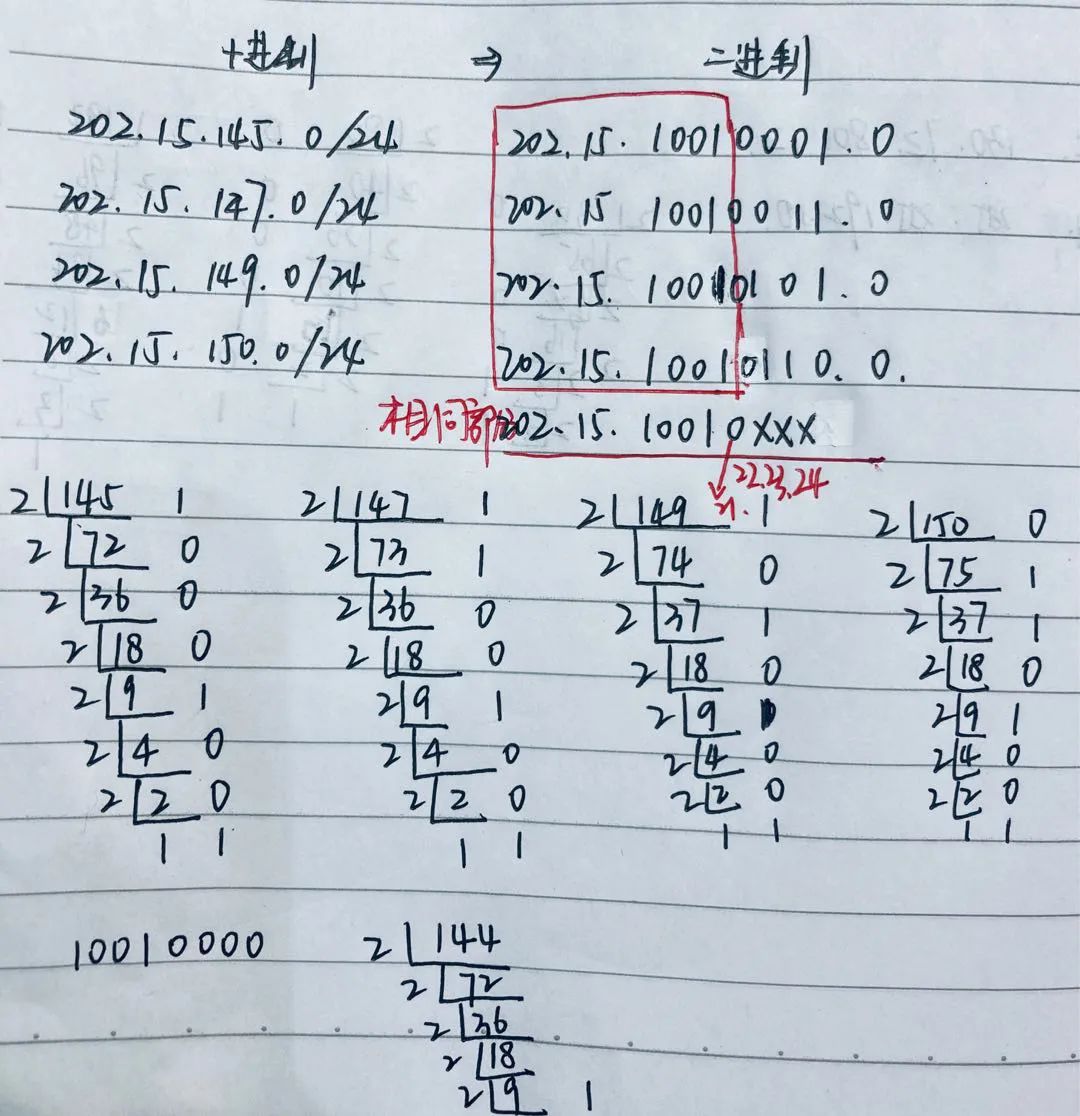 十进制 ⇒ 二进制
202.15.145.0/24 202.15.10010001.0
202.15.147.0/24 202.15 10010011.0
202.15.149.0/24 202.15.10010101.0
202.15.150.0/24 202.15.10010110.0.
相同部分 202.15.10010XXX
21. 22.23.24
2 145 1 2 147 1 2 149 1 2 150 0
2 72 0 2 73 1 2 74 0 2 75 1
2 36 0 2 36 0 2 37 1 2 37 1
2 18 0 2 18 0 2 18 0 2 18 0
2 9 1 2 9 1 2 9 1 2 9 1
2 4 0 2 4 0 2 4 0 2 4 0
2 2 0 2 2 0 2 2 0 2 2 0
1 1 1 1 1 1 1 1
10010000 2 144
2 72
2 36
2 18
2 9 1